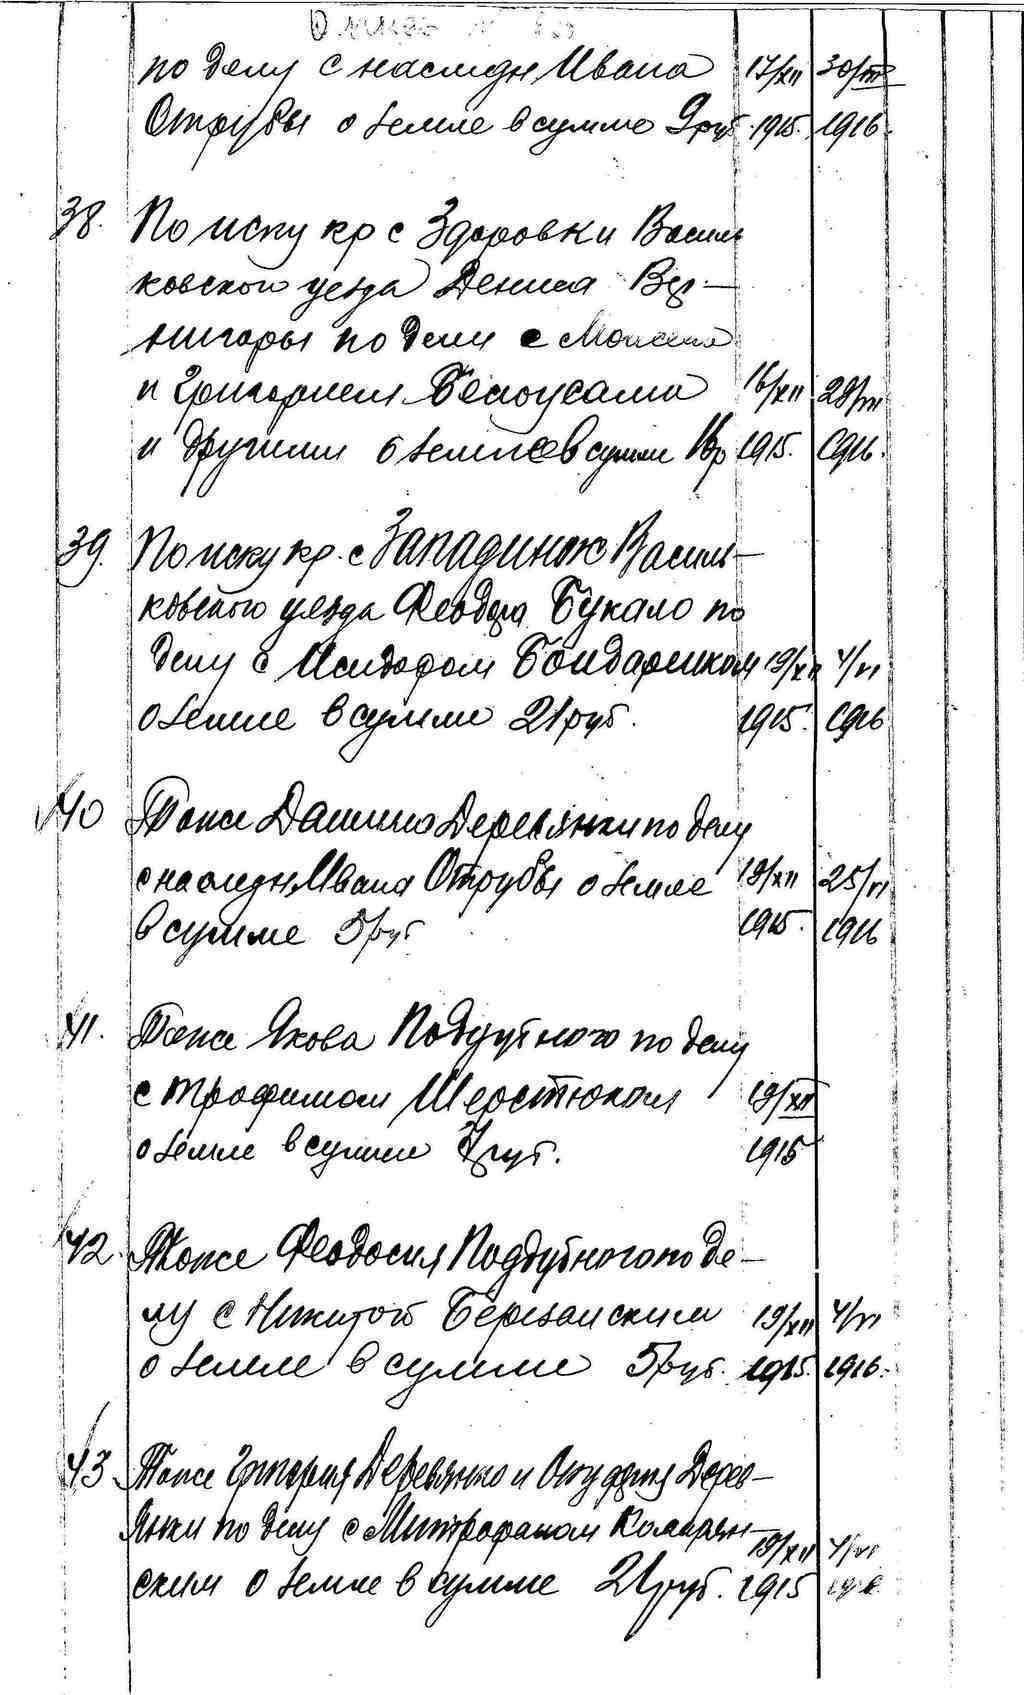 по делу с наследн Ивана 17/XII 30/III
Отрубы о земле в сумме 9 руб. 1915. 1916.
38. По иску кр с Здоровки Василь
ковского уезда Дениса Вер-
нигоры по делу с Моисеем
и Григорием Белоусами 16/XII 28/VII
и другими о земле в сумме 1915. 1916.
39. По иску кр. с Западинок Василь-
ковского уезда Феодора Букало по
делу с Исидором Бондаренком 19/XII 4/VI
о земле в сумме 21 руб. 1915. 1916
40 Тоже Данило Деревянки по делу
с наследн Ивана Отрубы о земле 19/XII 25/VI
в сумме 5 руб 1915. 1916
41. Тоже Якова Поддубного по делу
с Трофимом Шерстюком 19/XII
о земле в сумме 7 руб. 1915
42. Тоже Феодосия Поддубного по де-
лу с Никитой Березанским 19/XII 4/VI
о земле в сумме 5 руб. 1915. 1916.
43 Тоже Григория Деревянко и Дерев-
янки по делу с Митрофаном Комарян-
19/XII 4/VI
ским о земле в сумме 21 руб. 1915 1916